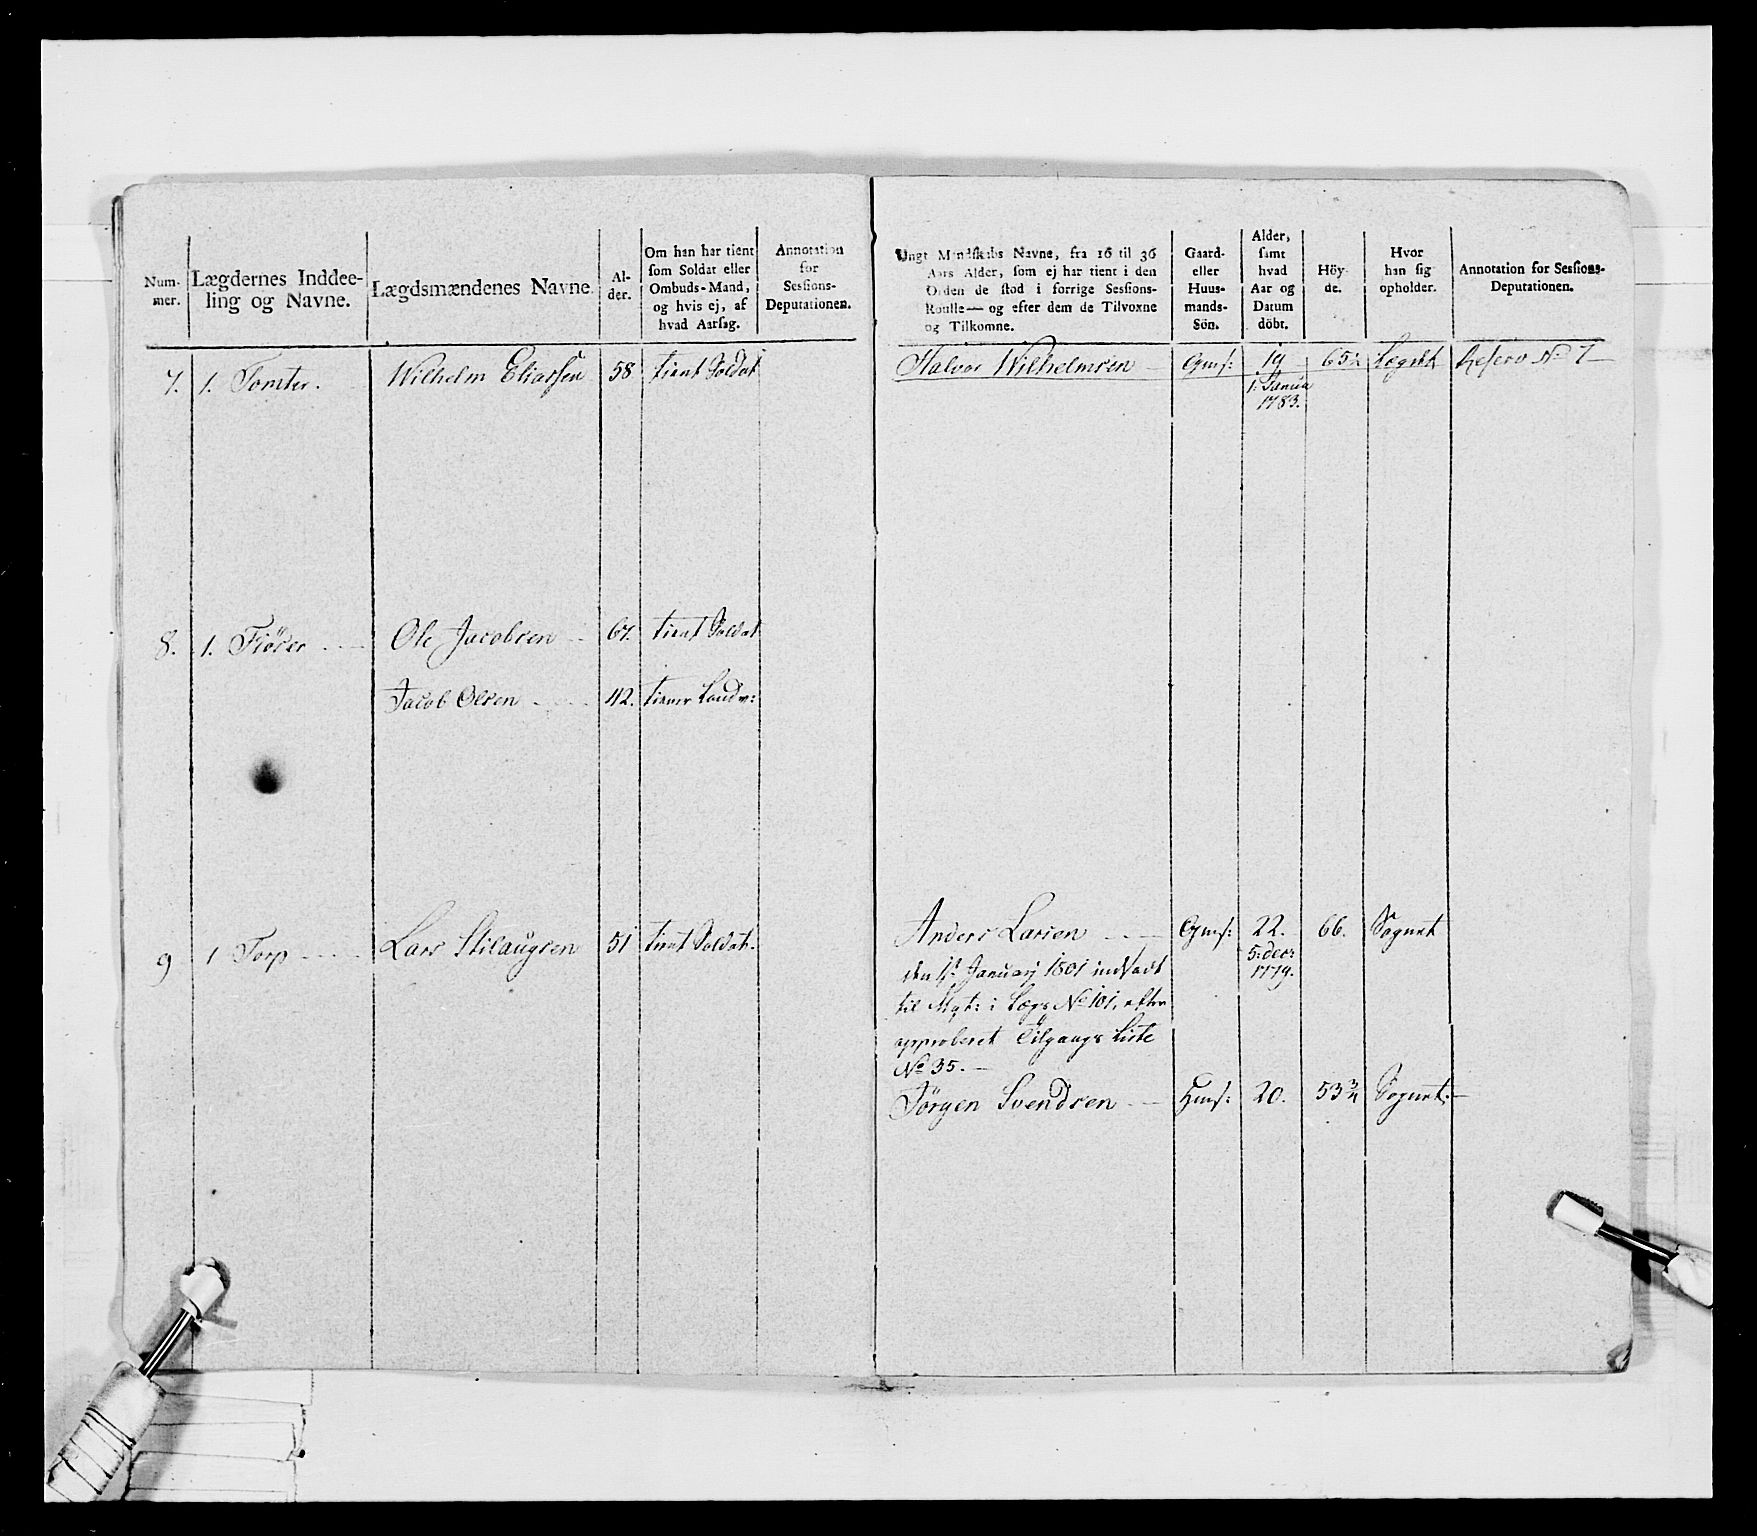 Num-
mer.
Lægdernes Inddee-
ling og Navne.
Lægdsmændenes Navne.
Al-
der.
Om han har tient
som Soldat eller
Ombuds-Mand,
og hvis ej, af
hvad Aarsag.
Annotation
for
Sessions-
Deputationen.
Ungt Mandskabs Navne, fra 16 til 36
Aars Alder, som ej har tient i den
Orden de stod i forrige Sessions-
Roulle — og efter dem de Tilvoxne
og Tilkomne.
Gaard-
eller
Huus-
mands-
Sön.
Alder,
samt
hvad
Aar og
Datum
döbt.
Höy-
de.
Hvor
han sig
opholder.
Annotation for Sessions-
Deputationen.
7. 1. Tomter. Wilhelm Eliassen 58 tient Soldat Halvor Wilhelmsen Gmſ: 19 65½ Lægdet Reserv No 7
1: Janua
1783.
8. 1. Ole Jacobsen 67. tient Soldat
Jacob Olsen 42. tiener Landv:
9 1 Torp Lars Stilaugsen 51 tient Soldat. Anders Larsen Gmſ: 22. 66. Sognet
5: decr
1779.
den 1t Januarj 1801 indsadt
til Mqt: i Lægs No 101, efter
approberet Tilgangs Liste
No 35.
Jörgen Svendsen Hmſ: 20. 53¾ Sognet.